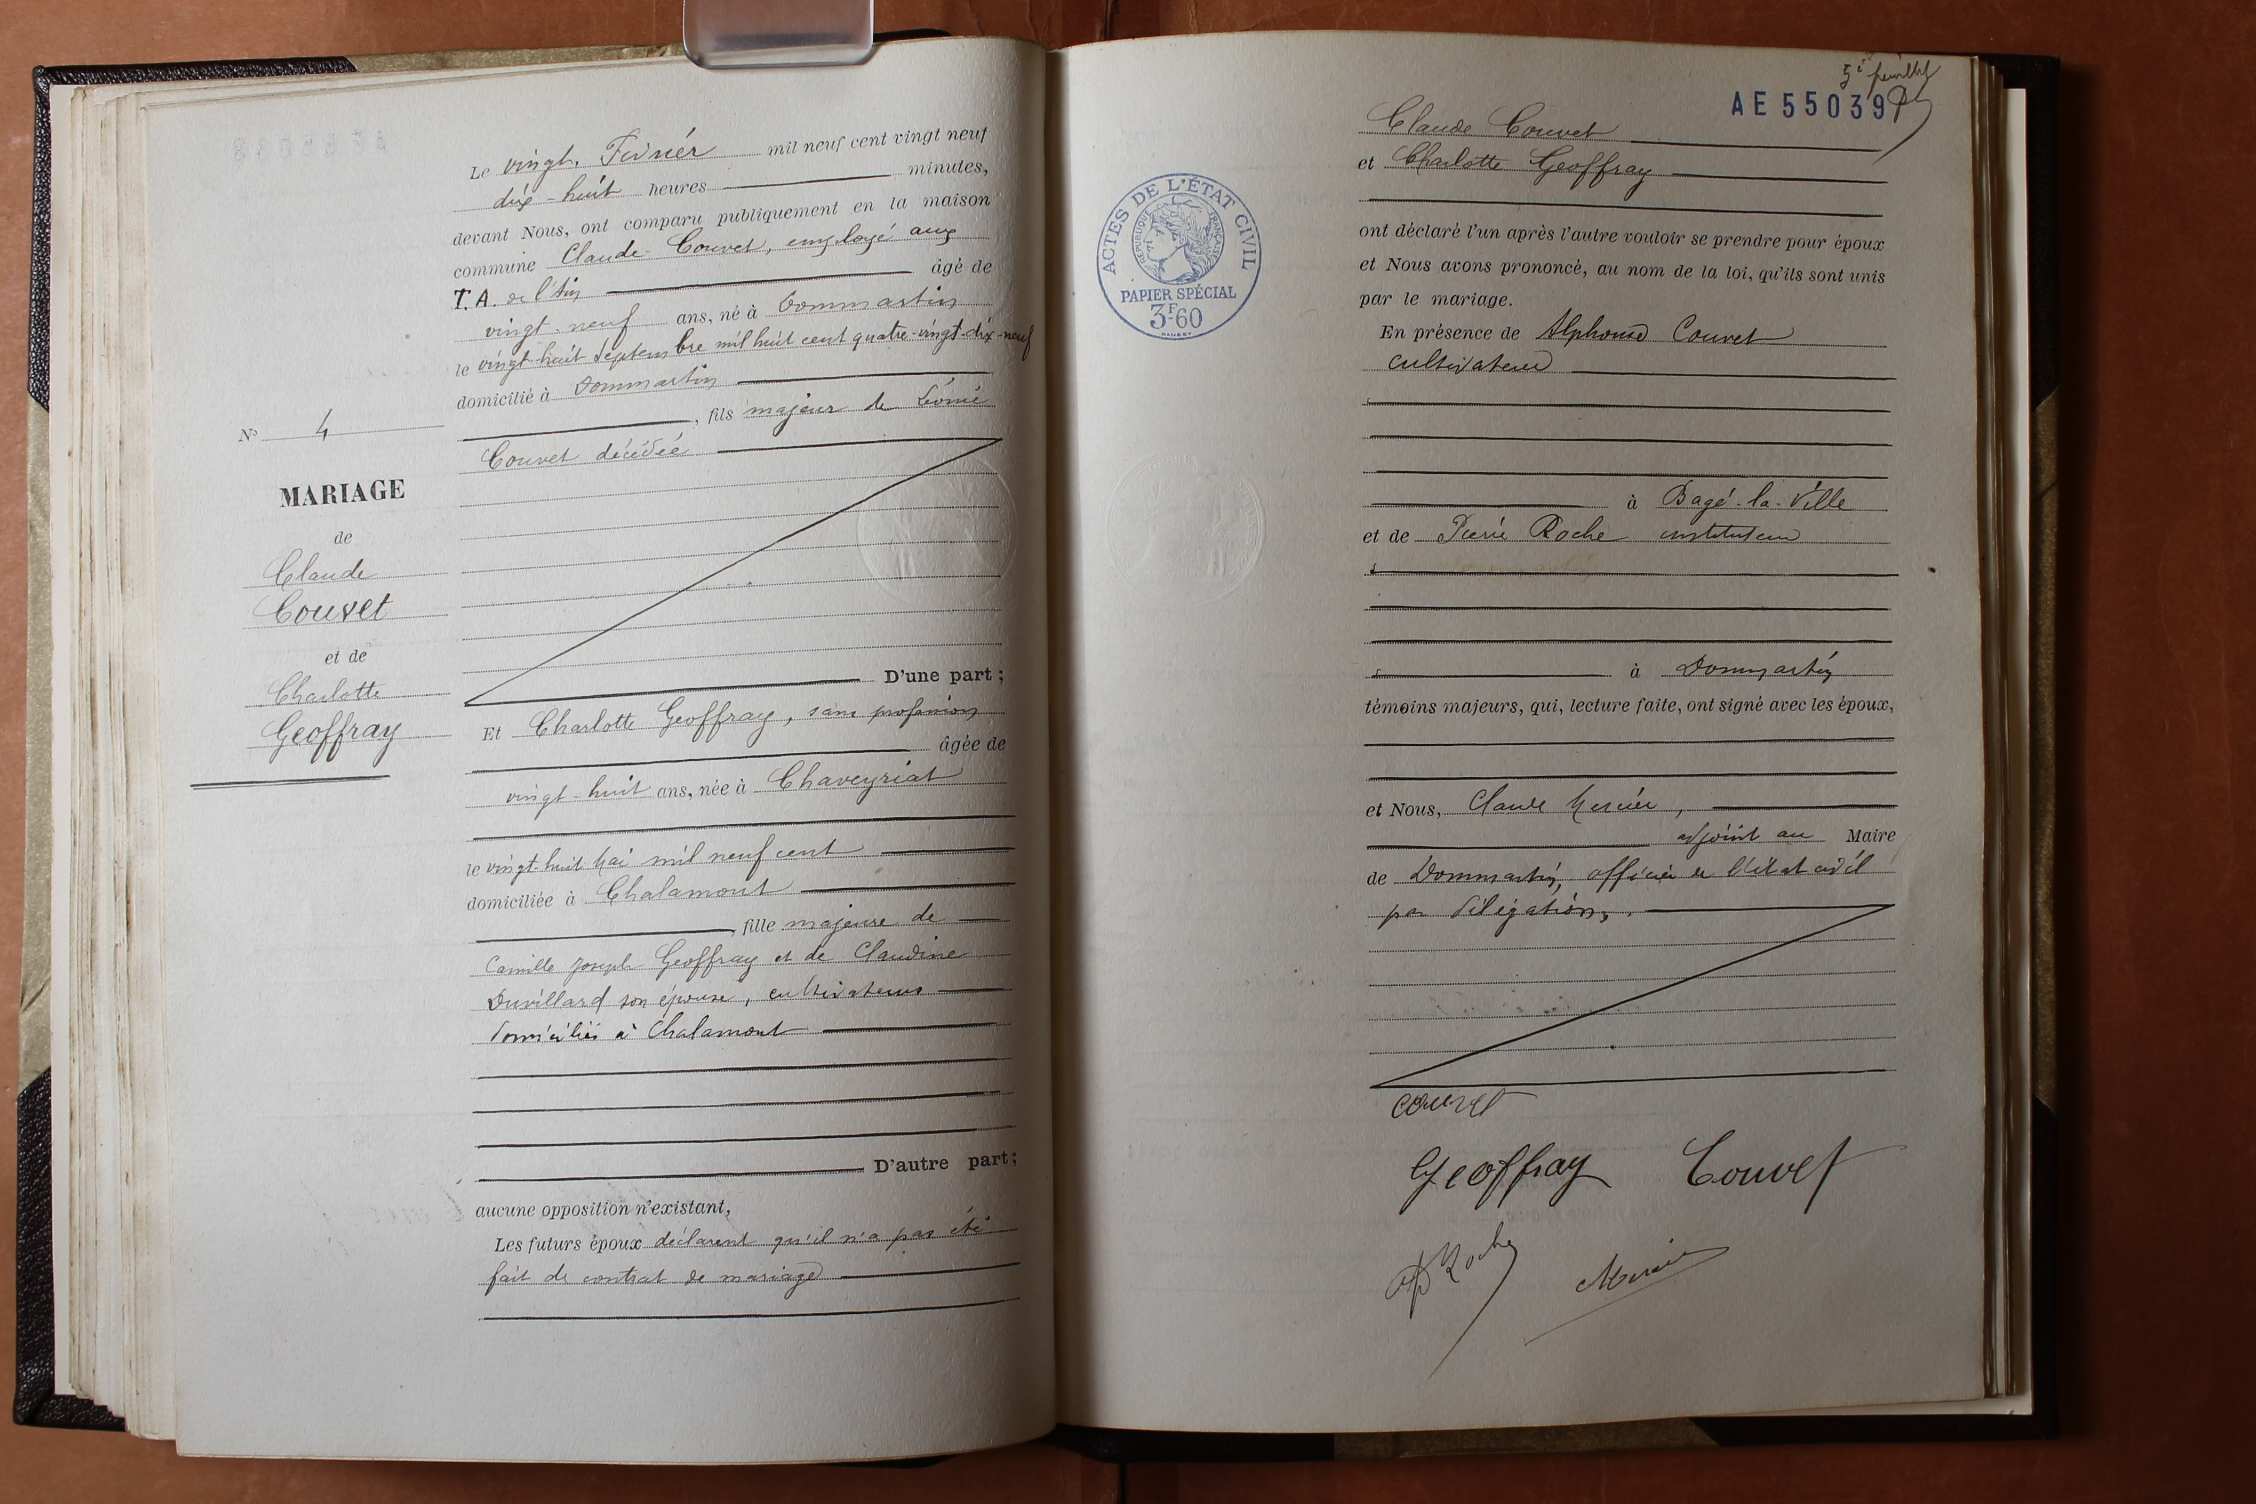 Le vingt, Février mil neuf cent vingt neuf
dix-huit heures minutes,
devant Nous, ont comparu publiquement en la maison
commune Claude Couvet, employé aux
T.A. de l'Ain âgé de
vingt-neuf ans, né à Dommartin
le vingt-huit Septembre mil huit cent quatre-vingt-dix-neuf
domicilié à Dommartin
, fils majeur de Léonie
Couvet décédée
D'une part ;
Nº 4
MARIAGE
de
Claude
Couvet
et de
Charlotte
Geoffray
Et Charlotte Geoffray, sans profession
âgée de
vingt-huit ans, née à Chaveyriat
le vingt-huit Mai mil neuf cent
domiciliée à Chalamont
, fille majeure de
Camille Joseph Geoffray et de Claudine
Duvillard son épouse, cultivateurs
domiciliés à Chalamont
D'autre part ;
aucune opposition n'existant,
Les futurs époux déclarent qu'il n'a pas été
fait de contrat de mariage
5e feuillet
AE 55039
Claude Couvet
et Charlotte Geoffray
ACTES DE L'ÉTAT CIVIL
RÉPUBLIQUE FRANÇAISE
PAPIER SPÉCIAL
3F60
ont déclaré l'un après l'autre vouloir se prendre pour époux
et Nous avons prononcé, au nom de la loi, qu'ils sont unis
par le mariage.
En présence de Alphonse Couvet
cultivateur
à Bagé-la-Ville
et de Pierre Roche instituteur
à Dommartin
témoins majeurs, qui, lecture faite, ont signé avec les époux,
et Nous, Claude Mercier,
adjoint au Maire
de Dommartin, officier de l'état civil
par délégation,.
Couvet
Geoffray Couvet
Roche Mercier